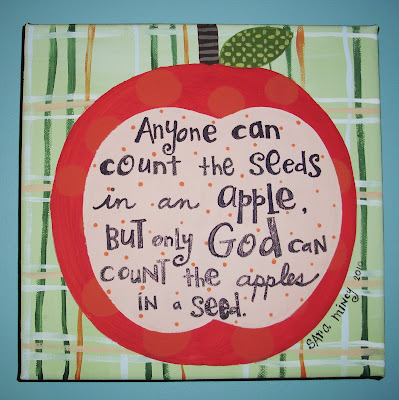 Anyone can
count the seeds
in an apple,
BUT only GOD can
COUNT the apples
IN a SEED.
SARA MINCY 2010